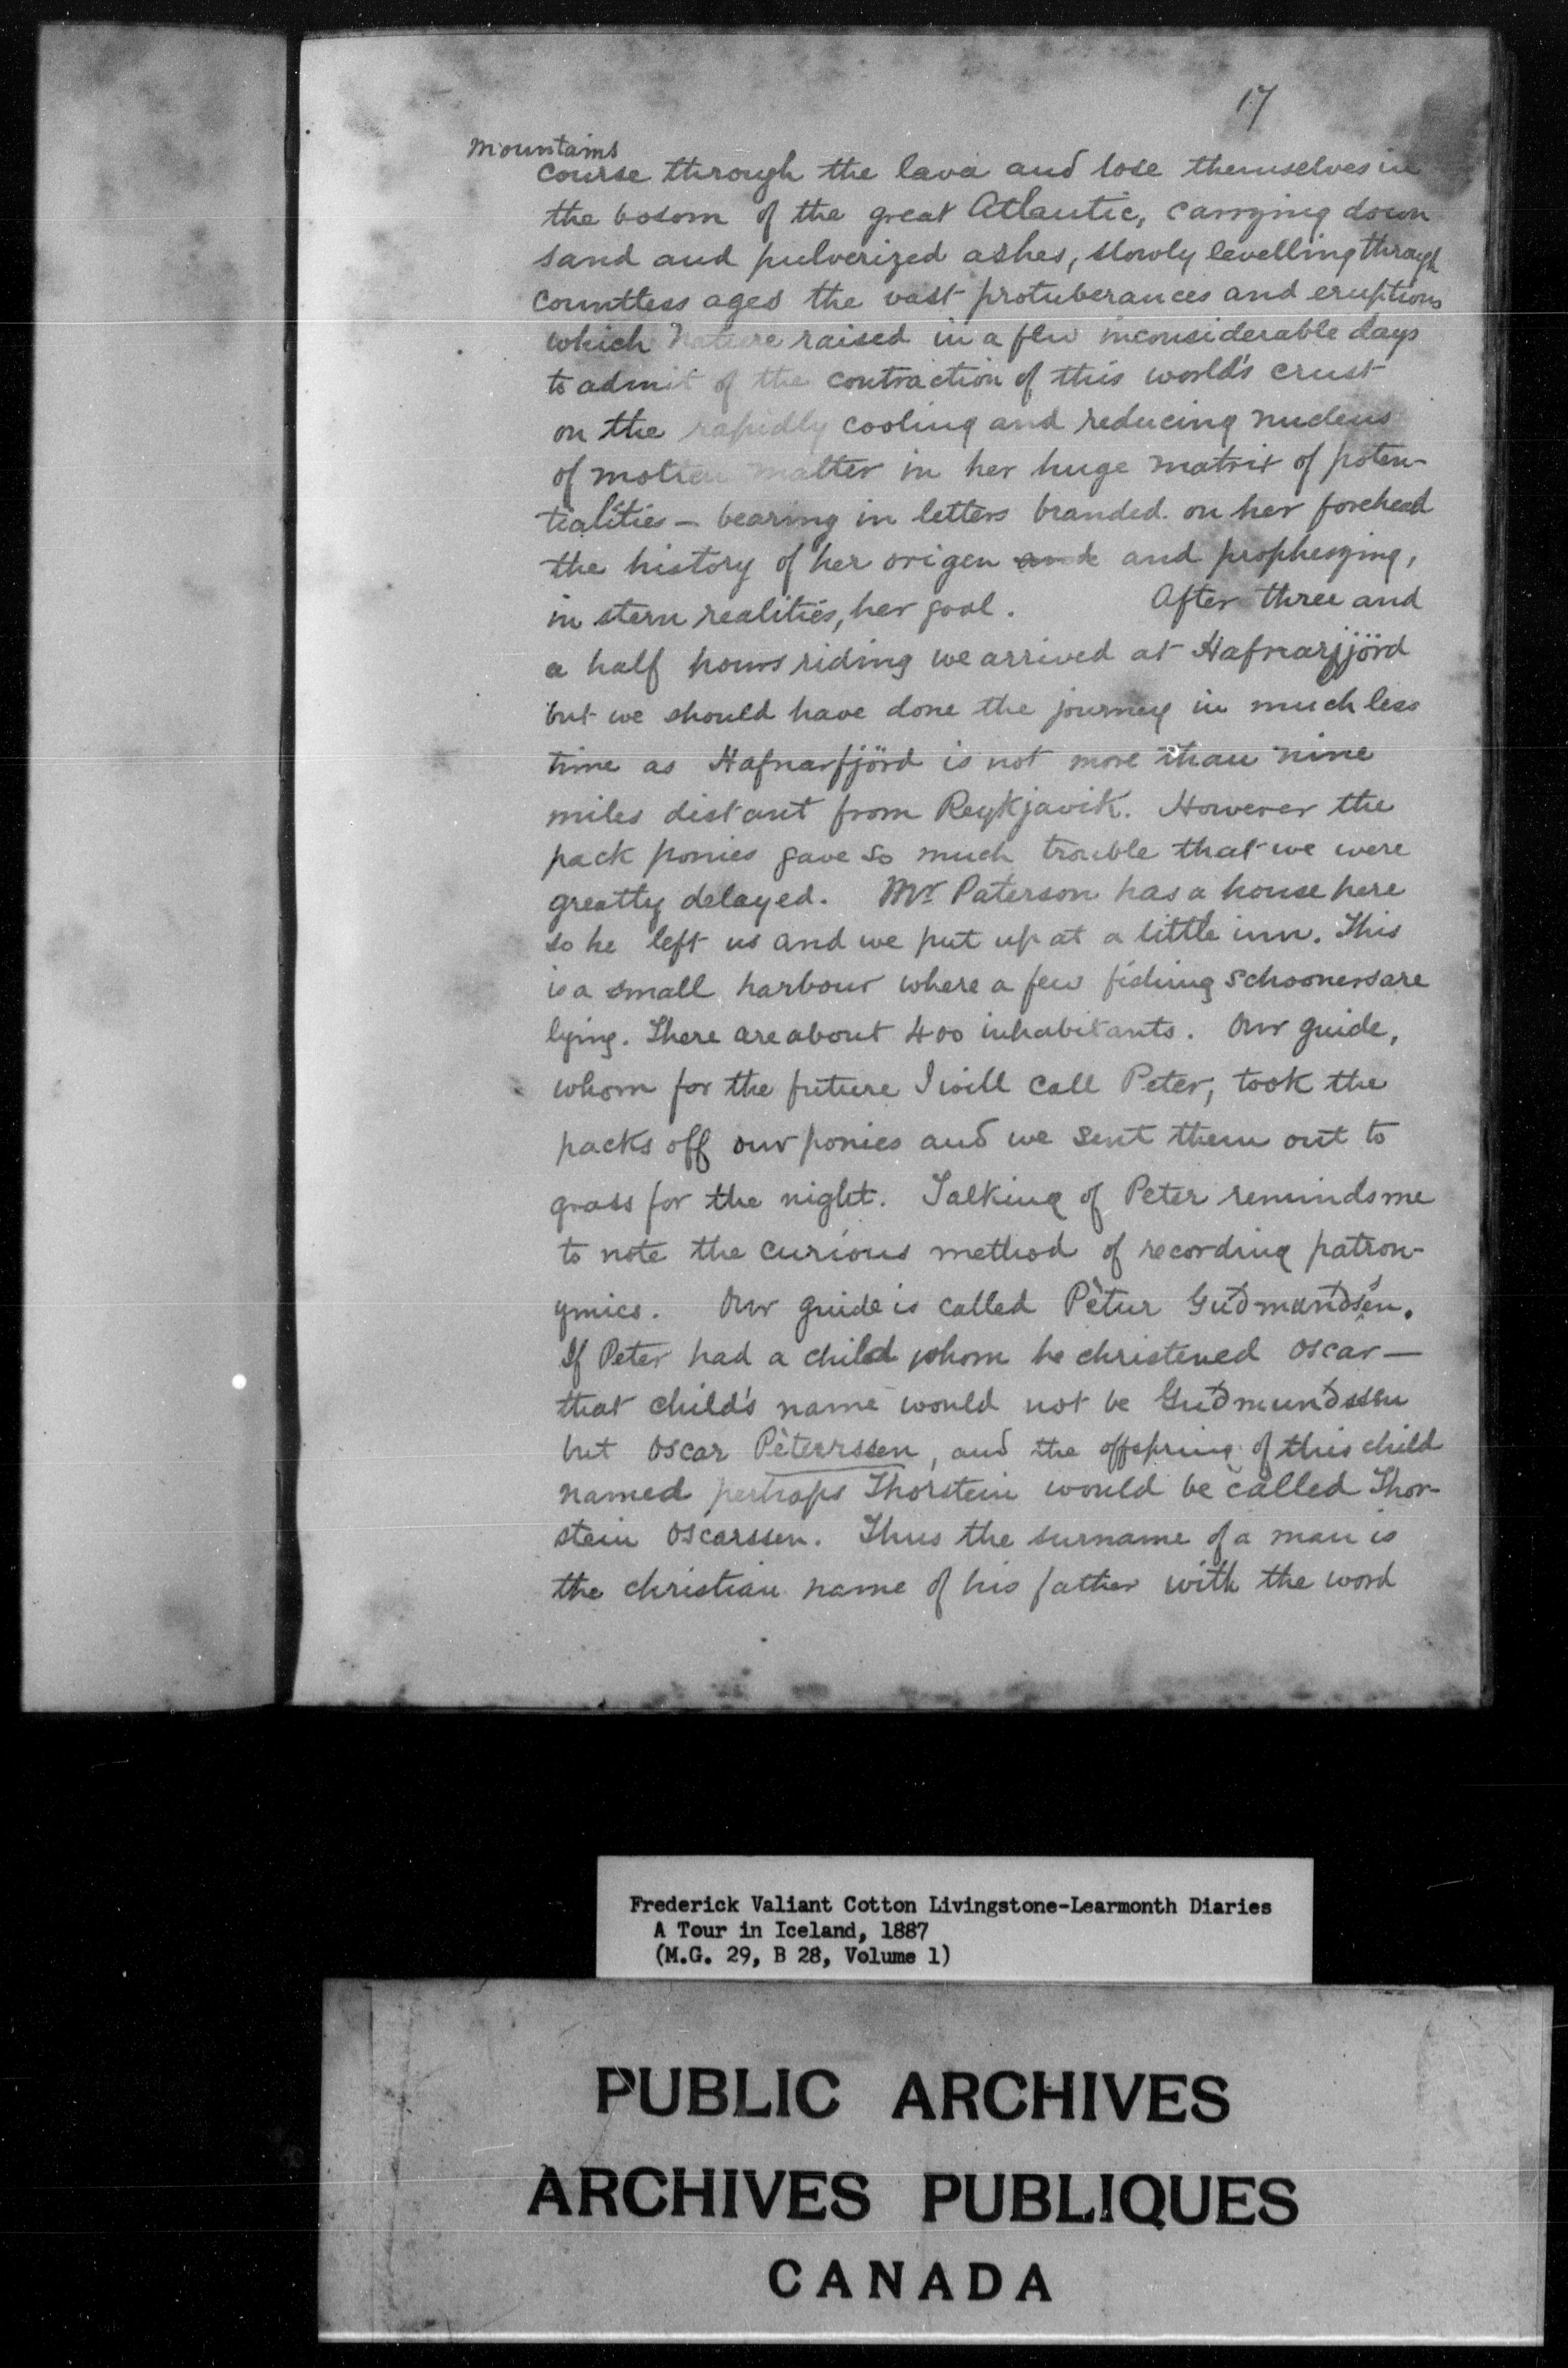 17
mountains
course through the lava and lose themselves in
the bosom of the great Atlantic, carrying down
sand and pulverized ashes, slowly levelling through
countless ages the vast protuberances and eruptions
which Nature raised in a few inconsiderable days
to admit of the contraction of this world's crust
on the rapidly cooling and reducing nucleus
of molten matter in her huge matrix of poten-
tialities — bearing in letters branded on her forehead
the history of her origen and and prophesying,
in stern realities, her goal. After three and
a half hours riding we arrived at Hafnarfjörd
but we should have done the journey in much less
time as Hafnarfjörd is not more than nine
miles distant from Reykjavik. However the
pack ponies gave so much trouble that we were
greatly delayed. Mr Paterson has a house here
so he left us and we put up at a little inn. This
is a small harbour where a few fishing schooners are
lying. There are about 400 inhabitants. Our guide,
whom for the future I will call Peter, took the
packs off our ponies and we sent them out to
grass for the night. Talking of Peter reminds me
to note the curious method of recording patron-
ymics. Our guide is called Pètur Guðmundssen.
If Peter had a child whom he christened Oscar —
that child's name would not be Guðmundssen
but Oscar Pèterssen, and the offspring of this child
named perhaps Thorstein would be called Thor-
stein Oscarssen. Thus the surname of a man is
the christian name of his father with the word
Frederick Valiant Cotton Livingstone-Learmonth Diaries
A Tour in Iceland, 1887
(M.G. 29, B 28, Volume 1)
PUBLIC ARCHIVES
ARCHIVES PUBLIQUES
CANADA